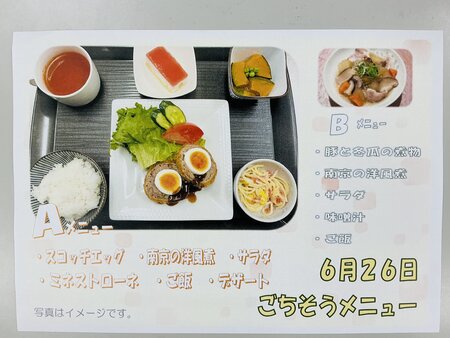 B メニュー
・豚と冬瓜の煮物
・南京の洋風煮
・サラダ
・味噌汁
・ご飯
Aメニュー
・スコッチエッグ ・南京の洋風煮 ・サラダ
・ミネストローネ ・ご飯 ・デザート
写真はイメージです。
6月26日
ごちそうメニュー